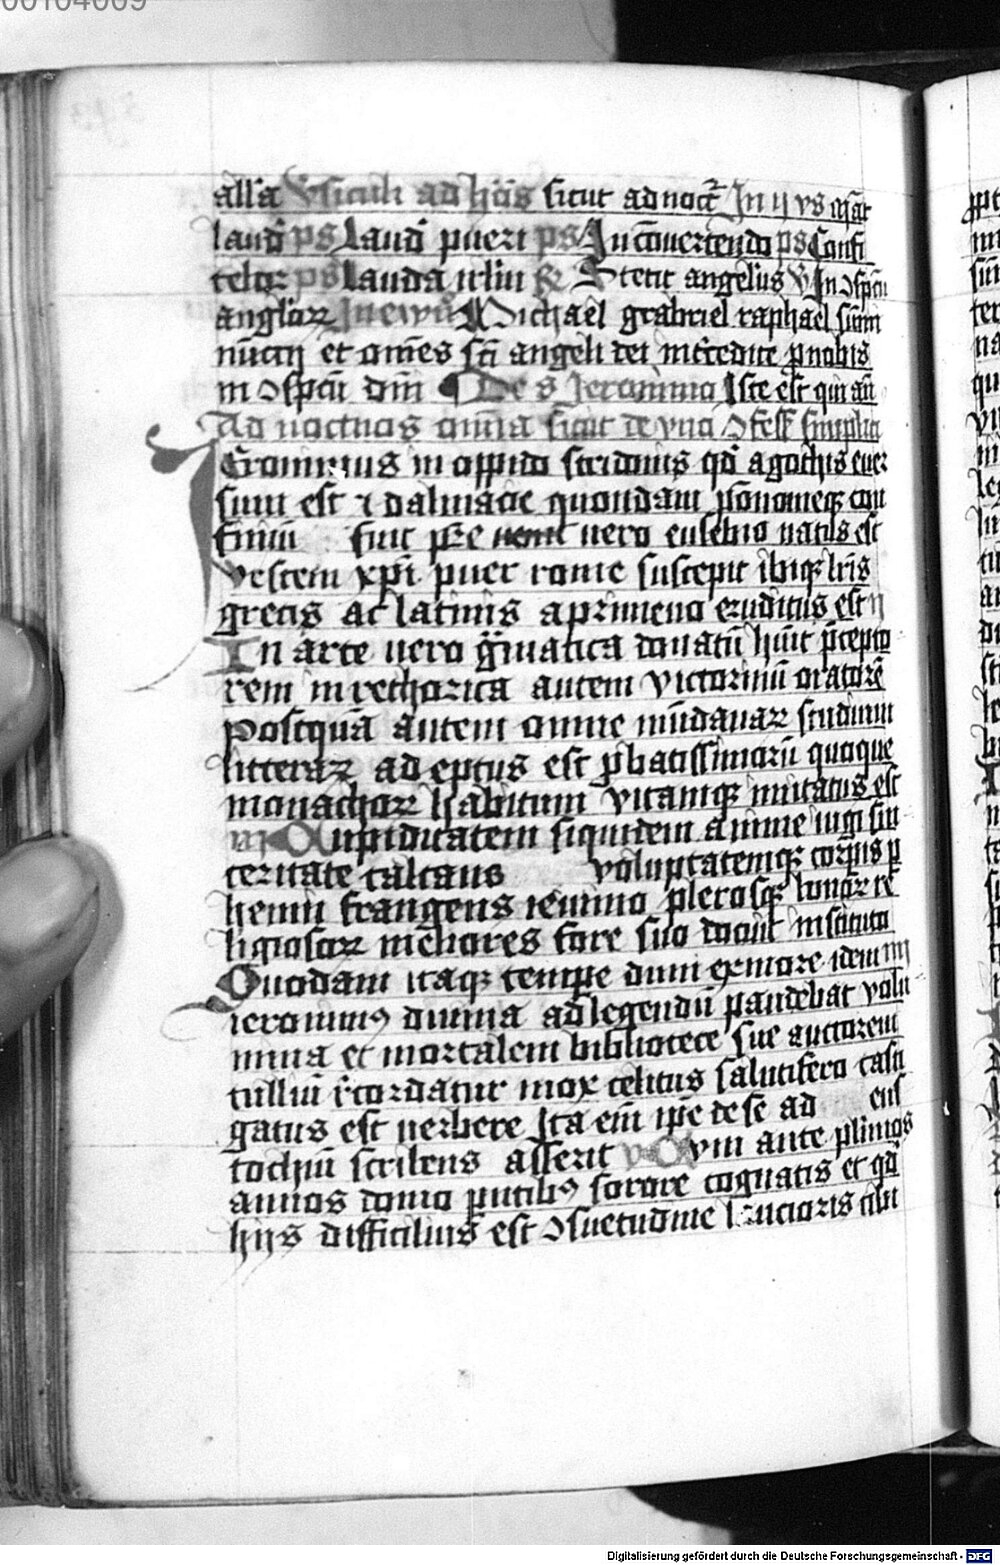 00104009
alla Vsiculi ad hōīs sicut ad noct In ii vs māt
laud ps Laud pueri ps In cōuertendo ps Confi
tebor ps Lauda irlm ℞ Stetit angelus V In ɔspcū
anglorꝝ In ewā Michael gabriel raphael
nūctij et omēs sc̄i angeli dei int̄cedite p nobis
in ɔspcū dn̄i De s Ieronimo Iste est qui an̄
Ad noctnos om̄ia sicut de vno ɔfess simplici
Ieronimus in oppido stridonis qd̄ a gothis euer
sum est ⁊ dalmacie quondam pānonieqꝫ con
finiū fuit pꝛe uero eusebio natus est
vestem xp̄i puer rome suscepit ibiqꝫ lr̄is
grecis ac latinis a primeuo eruditus est ij
In arte uero gmatica donatū hūit p̄cepto
rem in rethorica autem victorinū oratorē
postquā autem omne mūdanaꝝ studium
litteraꝝ adeptus est pbatissimorū quoque
monachoꝝ habitum vitamqꝫ imitatus est
iij Cupiditatem siquidem anime iugi sin
ceritate calcans voluptatemqꝫ corpis p
hennī frangens ieiunio plerosqꝫ bonoꝝ re
ligiosoꝝ meliores fore suo docuit instituto
Quodam itaqꝫ tempe dum ex more idem iiij
ieronimꝯ diuina ad legendū pandebat volu
mina et mortalem bibliotece sue auctorem
tulliū r̄cordatur mox celitus salutifero casti
gatus est uerbere Ita em̄ ip̄e de se ad eus
tochiū scribens asserit v Cum ante plimos
annos domo p̄ntibꝯ sorore cognatis et qd̄
hijs difficilius est ɔsuetudine laucioris cibi
Digitalisierung gefördert durch die Deutsche Forschungsgemeinschaft - DFG